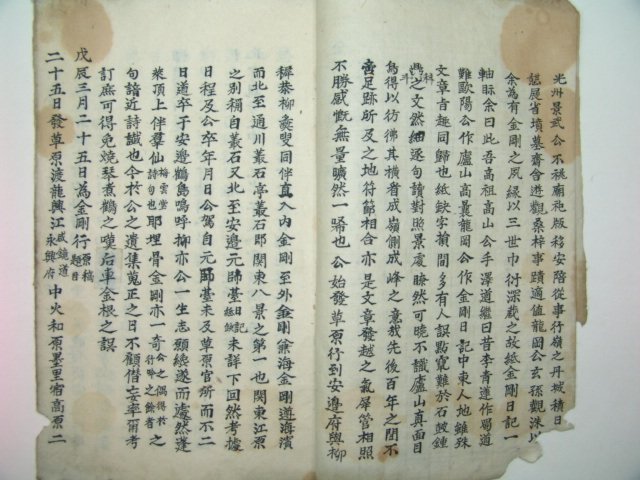 光州景武公不祧廟祀版移安陪從事行嶺之丹城積日
認展省墳墓齋舍遊觀桑梓事蹟適値龍岡公玄孫觀洙以
余爲有金剛之夙緣以三世巾衍深藏之故紙金剛日記一
軸眎余曰此吾高祖高山公手澤道繼曰昔李靑蓮作蜀道
難歐陽公作廬山高曩龍岡公作金剛日記中東人地雖殊
文章旨趣同歸也紙缺字橫間多有人誤點竄難於石皷鍾
之文然細逐句讀對照景處瞭然可曉不識廬山眞面目
焉得以彷彿其橫者成嶺側成峰之意哉先後百年之間不
啻足跡所及之地符節相合亦是文章發越之氣犀管相照
不勝感慨無量曠然一晞也公始發草原行到安邊府與柳
稺恭柳彙叟同伴直入內金剛至外金剛兼海金剛遵海濱
而北至通川叢石亭叢石卽関東八景之第一也関東江原
之別稱自叢石又北至安邊元師臺日記紙缺未詳下回然考據
日程及公卒年月日公駕自元師臺未及草原官所而不二
日遂卒于安邊鶴鳥嗚呼柳亦公一生志願續遂而處然蓬
萊頂上伴羣仙梅雲堂詩句也耶埋骨金剛亦一奇公之偶得於行吟之餘者之
句諳近詩讖也今於公之遺集蒐正之日不顧僭妄率爾考
訂庶可得免燒琴煮鶴之嘆后車金根之誤
戊辰三月二十五日爲金剛行原稿題目
二十五日發草原渡龍興江咸鏡道永興府中火和原墨里宿高原二